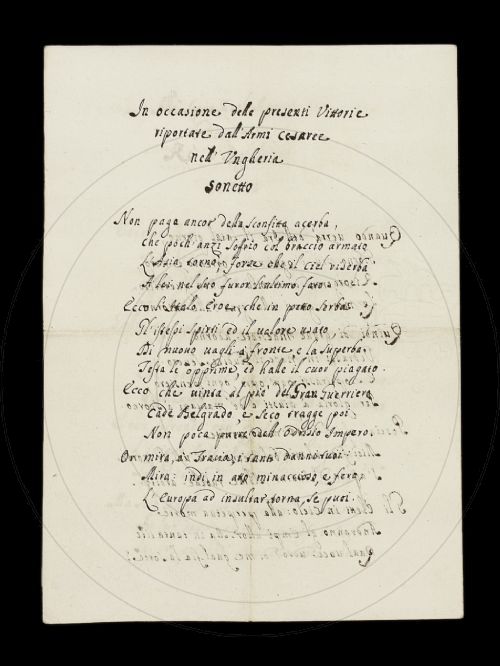 In occasione delle presenti Vittorie
riportate dall'Armi cesaree
nell' Vngheria
Sonetto
Non paga ancor della sconfitta acerba,
che poch'anzi sofrio col braccio armato
L'Asia torna, forse che il ciel riserba
A lei nel suo furor l'ultimo fato.
Ecco l'Italo Eroe, che in petto serba
Gl'istessi spirti ed il valore usato
Di nuovo vagli a fronte e la superba
Testa le opprime, ed halle il cuor piagato.
Ecco che vinta al piè del Gran guerriero
Cade Belgrado e seco tragge poi
Non poca parte dell'Odrisio Impero.
Or mira, o Tracia, i tanti danni tuoi
Mira indi in atto minaccioso, e fero,
L'Europa ad insultar torna, se puoi.